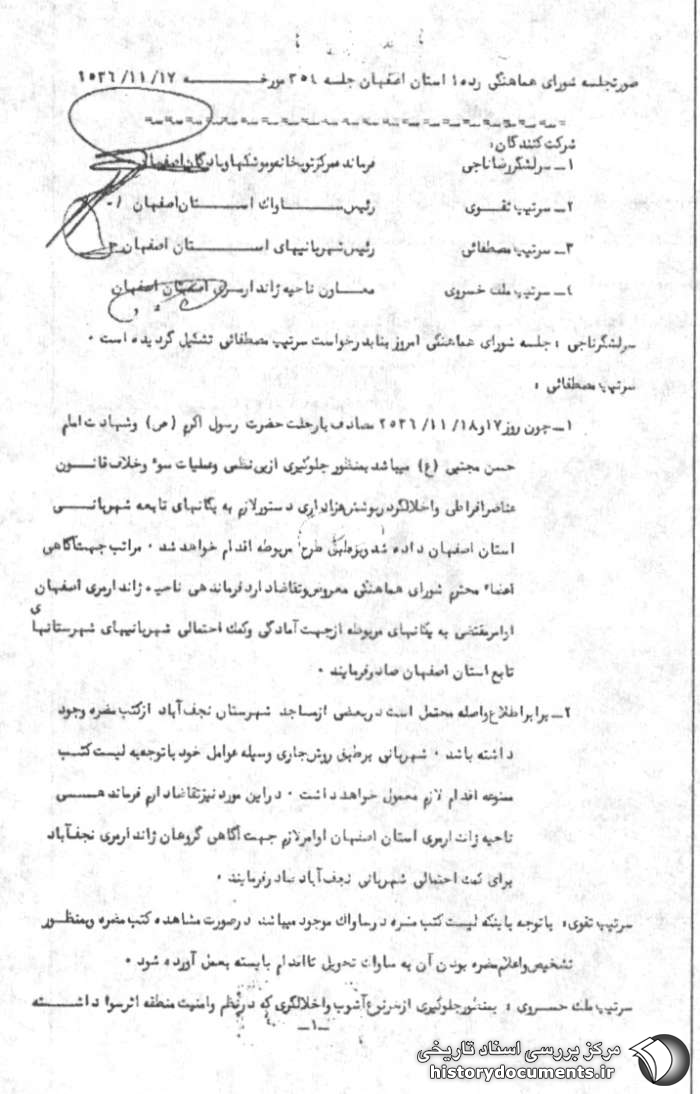 صورتجلسه شورای هماهنگی رده ۱ استان اصفهان جلسه ۳۵٤ مورخه ۲۵۳٦/۱۱/۱۷
شرکت کنندگان:
۱ــ سرلشگر رضا ناجی فرمانده مرکز توپخانه و موشکها و پادگان اصفهان
۲ــ سرتیپ تقوی رئیس ساواک استان اصفهان
۳ــ سرتیپ مصطفائی رئیس شهربانیهای استان اصفهان
٤ــ سرتیپ ملک خسروی معاون ناحیه ژاندارمری اصفهان اصفهان
سرلشگر ناجی : جلسه شورای هماهنگی امروز بنا بدرخواست سرتیپ مصطفائی تشکیل گردیده است .
سرتیپ مصطفائی :
۱ــ چون روز ۱۷ و ۲۵۳٦/۱۱/۱۸ مصادف با رحلت حضرت رسول اکرم (ص) و شهادت امام
حسن مجتبی (ع) میباشد بمنظور جلوگیری از بی نظمی و عملیات سوء و خلاف قانون
عناصر افراطی و اخلالگر در پوشش عزاداری دستور لازم به یگانهای تابعه شهربانی
استان اصفهان داده شد و برطبق طرح مربوطه اقدام خواهد شد . مراتب جهت آگاهی
اعضاء محترم شورای هماهنگی معروض و تقاضا دارد فرماندهی ناحیه ژاندارمری اصفهان
اوامر مقتضی به یگانهای مربوطه از جهت آمادگی و کمک احتمالی شهربانیهای شهرستانهای
تابع استان اصفهان صادر فرمایند .
۲ــ برابر اطلاع واصله محتمل است در بعضی از مساجد شهرستان نجف آباد از کتب مضره وجود
داشته باشد . شهربانی برطبق روش جاری وسیله عوامل خود با توجه به لیست کتب
ممنوعه اقدام لازم معمول خواهد داشت . در این مورد نیز تقاضا دارم فرماندهی
ناحیه ژاندارمری استان اصفهان اوامر لازم جهت آگاهی گروهان ژاندارمری نجف آباد
برای کمک احتمالی شهربانی نجف آباد صادر فرمایند .
سرتیپ تقوی: با توجه باینکه لیست کتب مضره در ساواک موجود میباشد در صورت مشاهده کتب مضره و بمنظور
تشخیص و اعلام مضره بودن آن به ساواک تحویل تا اقدام بایسته بعمل آورده شود .
سرتیپ ملک خسروی : بمنظور جلوگیری از هر نوع آشوب و اخلالگری که در نظم و امنیت منطقه اثر سوء داشته
ــ۱ــ
مرکز بررسی اسناد تاریخی
historydocuments.ir